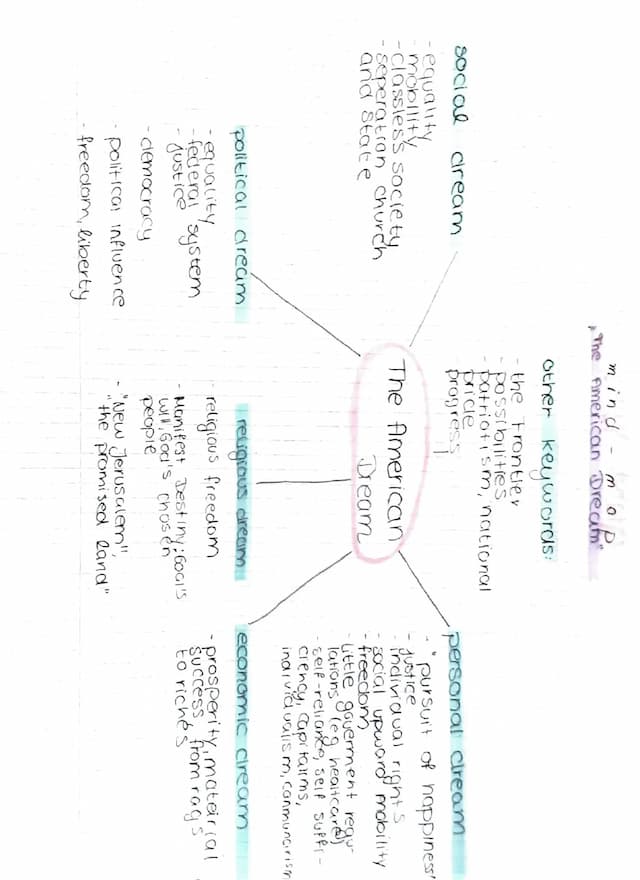 mind-map
"The American Dream"
other keywords:
- the Frontier
- possibilities
- patriotism, national
pride
- progress
social dream
- equality
- mobility
- classless society
- seperation church
and state
The American
Dream
personal dream
- "pursuit of happiness"
- justice
- individual rights
- social upward mobility
- freedom,
- little goverment regu-
lations (eg healtcare)
- self-reliance, self suffi-
ciency, capitalims,
individualism, communitarism
political dream
- equality
- federal system
- justice
- democracy
- political influence
- freedom, liberty
religious dream
- religious freedom
- Manifest Destiny: God's
will, God's chosen
people
- "New Jerusalem",
"the promised land"
economic dream
- prosperity, mateirial
success from rags
to riches